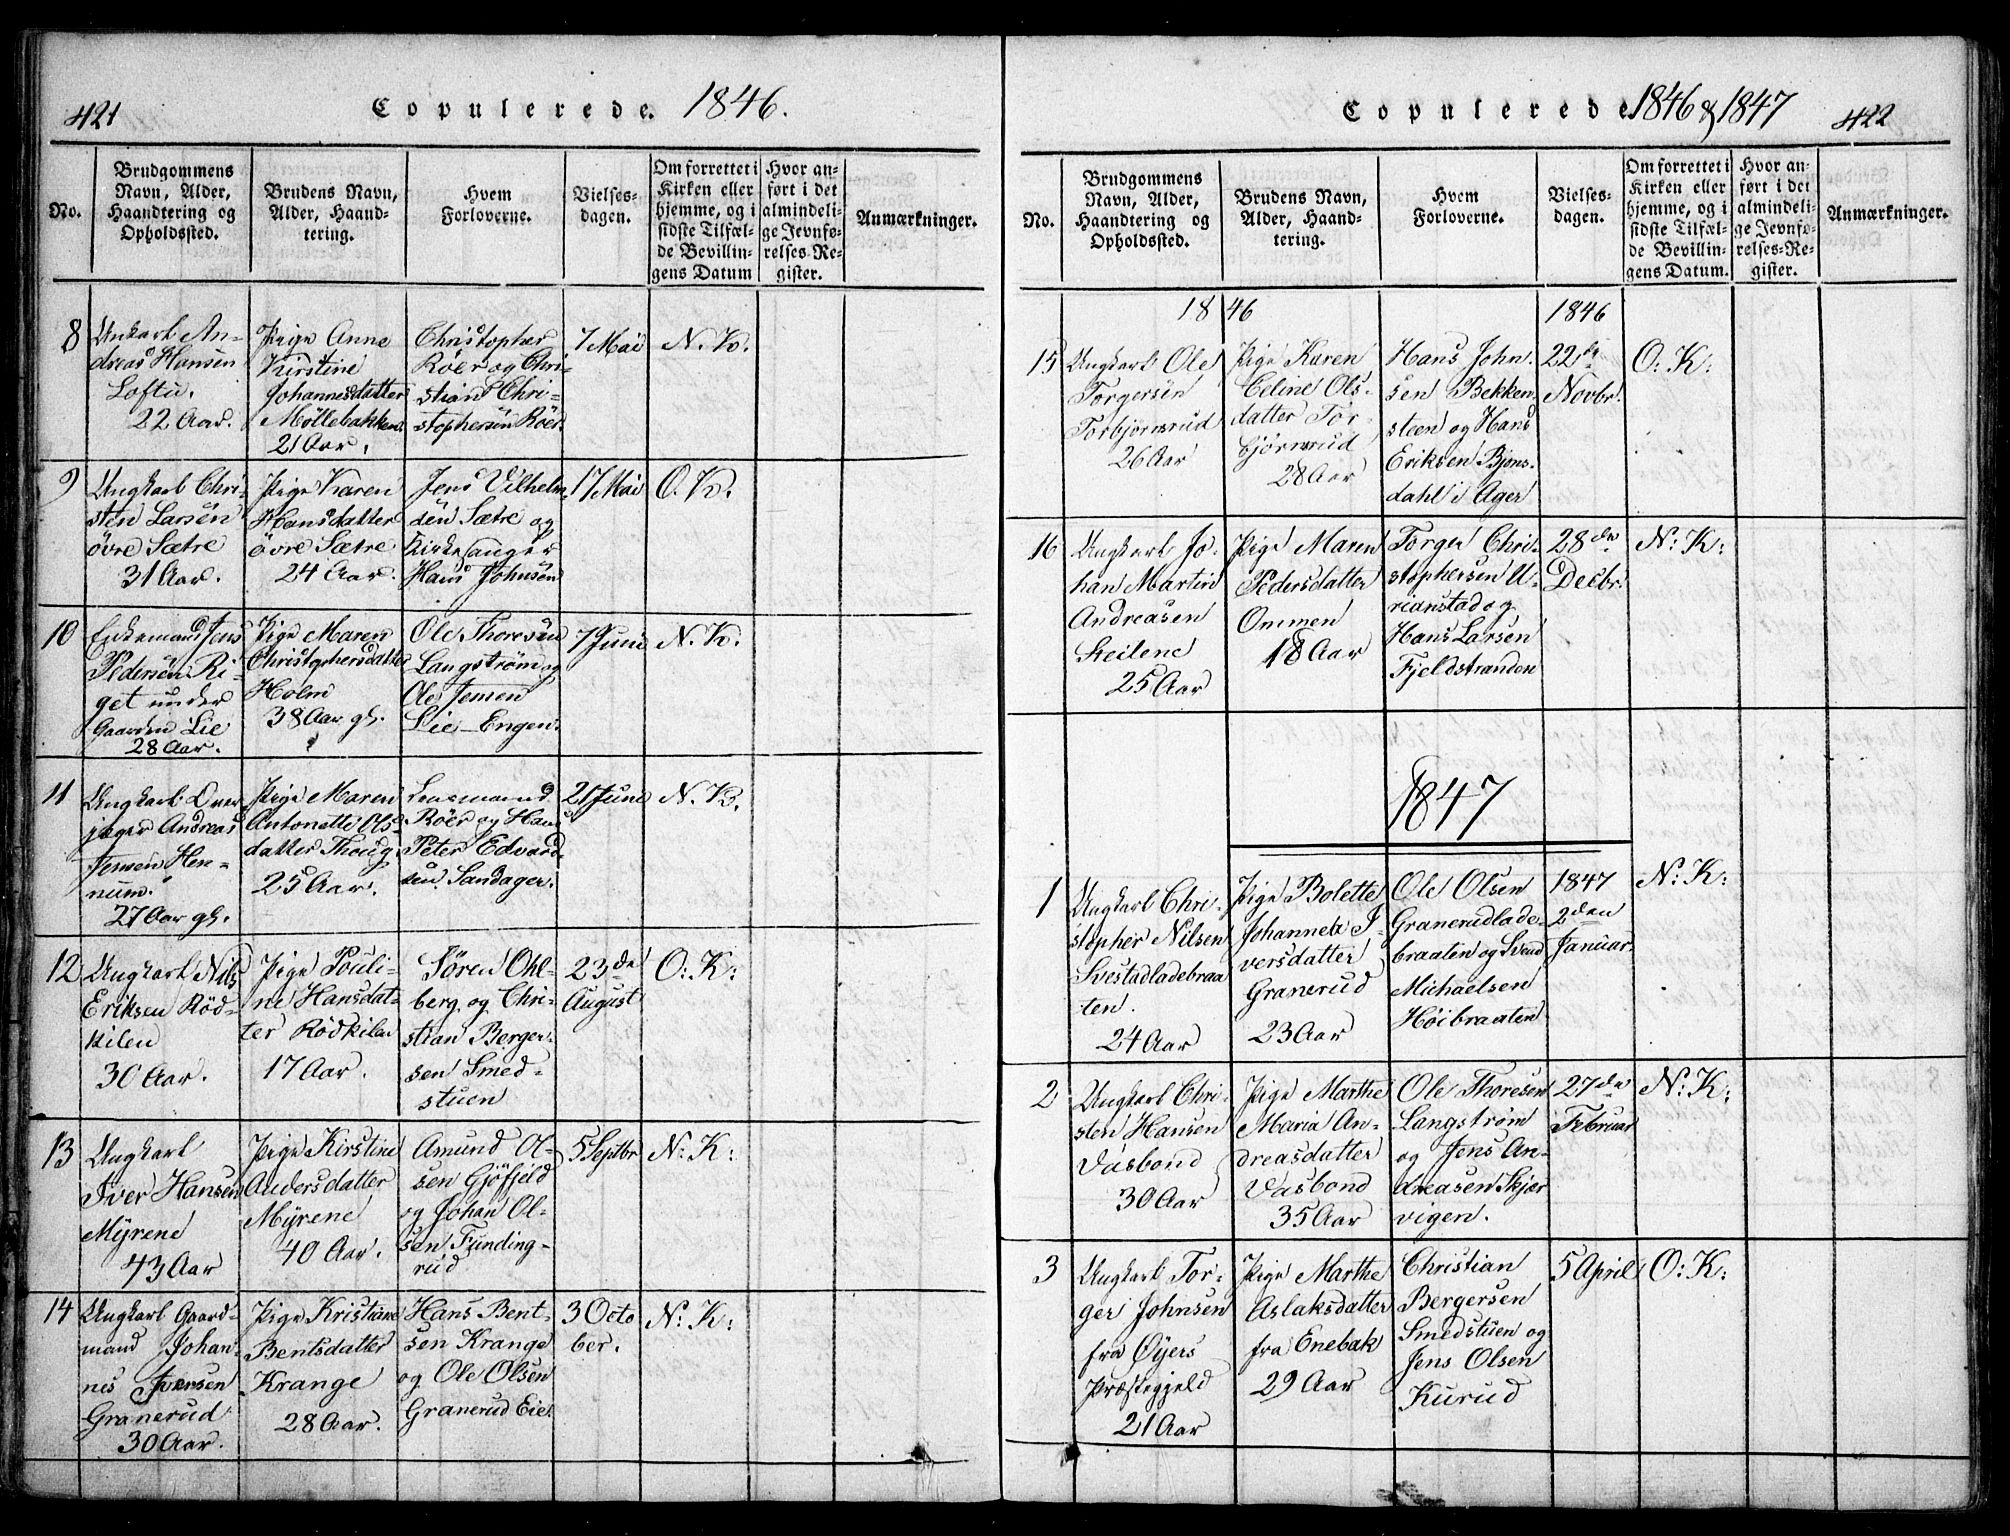 421
Copulerede. 1846.
No.
Brudgommens
Navn, Alder,
Haandtering og
Opholdssted.
Brudens Navn,
Alder, Haand-
tering.
Hvem
Forloverne.
Vielses-
dagen.
Om forrettet i
Kirken eller
hjemme, og i
sidste Tilfæl-
de Bevillin-
gens Datum
Hvor an-
ført i det
almindeli-
ge Jevnfø-
relses-Re-
gister.
Anmærkninger.
8
Unkarl An-
dreas Hansen
Loftu.
22 Aar.
Pige Anne
Kirstine
Johannesdatter
Møllebakken.
21 Aar.
Christopher
Röer og Chri-
stian Chri-
stophersen Röer
7 Mai
N. K.
9
Ungkarl Chri-
sten Larsen
övre Sætre
31 Aar.
Pige Karen
Hansdatter
övre Sætre
24 Aar.
Jens Vilhelm-
sen Sætre og
Kirkesanger
Hans Johnsen
17 Mai
O. K.
10
Enkemand Jens
Pedersen Ri-
get under
Gaarden Lie
28 Aar.
Pige Maren
Christophersdatter
Holm
38 Aar gl.
Ole Thoresen
Langström og
Ole Jensen
Lie-Engen.
7 Juni
N. K.
11
Ungkarl Over
jæger Andreas
Jensen Hen-
num.
27 Aar gl.
Pige Maren
Antonette Ols-
datter Thoug
25 Aar.
Lensmand
Röer og Hans
Peter Edvard-
sen Sandager.
21 Juni
N. K.
12
Ungkarl Nils
Eriksen Röd-
kilen
30 Aar.
Pige Pouli-
ne Hansdat-
ter Rödkilen
17 Aar.
Sören Ohl-
berg og Chri-
stian Berger-
sen Smed-
stuen
23de
August
O: K:
13
Ungkarl
Iver Hansen
Myrene
43 Aar
Pige Kirstine
Andersdatter
Myrene
40 Aar.
Amund Ol-
sen Gjöfjeld
og Johan Ol-
sen Funding-
rud
5 Septbr
N: K:
14
Ungkarl Gaard-
mand Johan-
nes Iversen
Granerud
30 Aar.
Pige Kristiane
Bentsdatter
Krange
28 Aar.
Hans Bent-
sen Krange
og Ole Olsen
Granerud Eie.
3 Octo
ber.
N: K:
Copulerede 1846 & 1847
422
No.
Brudgommens
Navn, Alder,
Haandtering og
Opholdssted.
Brudens Navn,
Alder, Haand-
tering.
Hvem
Forloverne.
Vielses-
dagen.
Om forrettet i
Kirken eller
hjemme, og i
sidste Tilfæl-
de Bevillin-
gens Datum.
Hvor an-
ført i det
almindeli-
ge Jevnfø-
relses-Re-
gister.
Anmærkninger.
1846
1846
15
Ungkarl Ole
Torgersen
Torbjørnsrud
26 Aar
Pige Karen
Celine Ols-
datter Tor-
bjørnsrud
28 Aar
Hans John-
sen Bekken-
steen og Hans
Eriksen Bjons-
dahl i Ager
22de
Novbr.
O: K:
16
Ungkarl Jo-
han Martin
Andreasen
Steilene
25 Aar
Pige Maren
Pedersdatter
Ommen
18 Aar
Torger Chri-
stophersen U-
rianstad og
Hans Larsen
Fjeldstranden
28de
Decbr.
N: K:
1847
1
Ungkarl Chri-
stopher Nilsen
Svestadladebraa
ten.
24 Aar
Pige Bolette
Johanne I-
versdatter
Granerud
23 Aar
Ole Olsen
Granerudlade-
braaten og Svend
Michaelsen
Höibraaten
1847
2den
Januar.
N: K:
2
Ungkarl Chri-
sten Hansen
Vasbond
30 Aar
Pige Marthe
Maria An-
dreasdatter
Vasbond
35 Aar
Ole Thoresen
Langström
og Jens An-
dreasen Skjær
vigen.
27de
Februar
N: K:
3
Ungkarl Tor-
ger Johnsen
fra Øyers
Præstegjeld
21 Aar
Pige Marthe
Aslaksdatter
fra Enebak
29 Aar
Christian
Bergersen
Smedstuen og
Jens Olsen
Kurud
5 April
O: K: